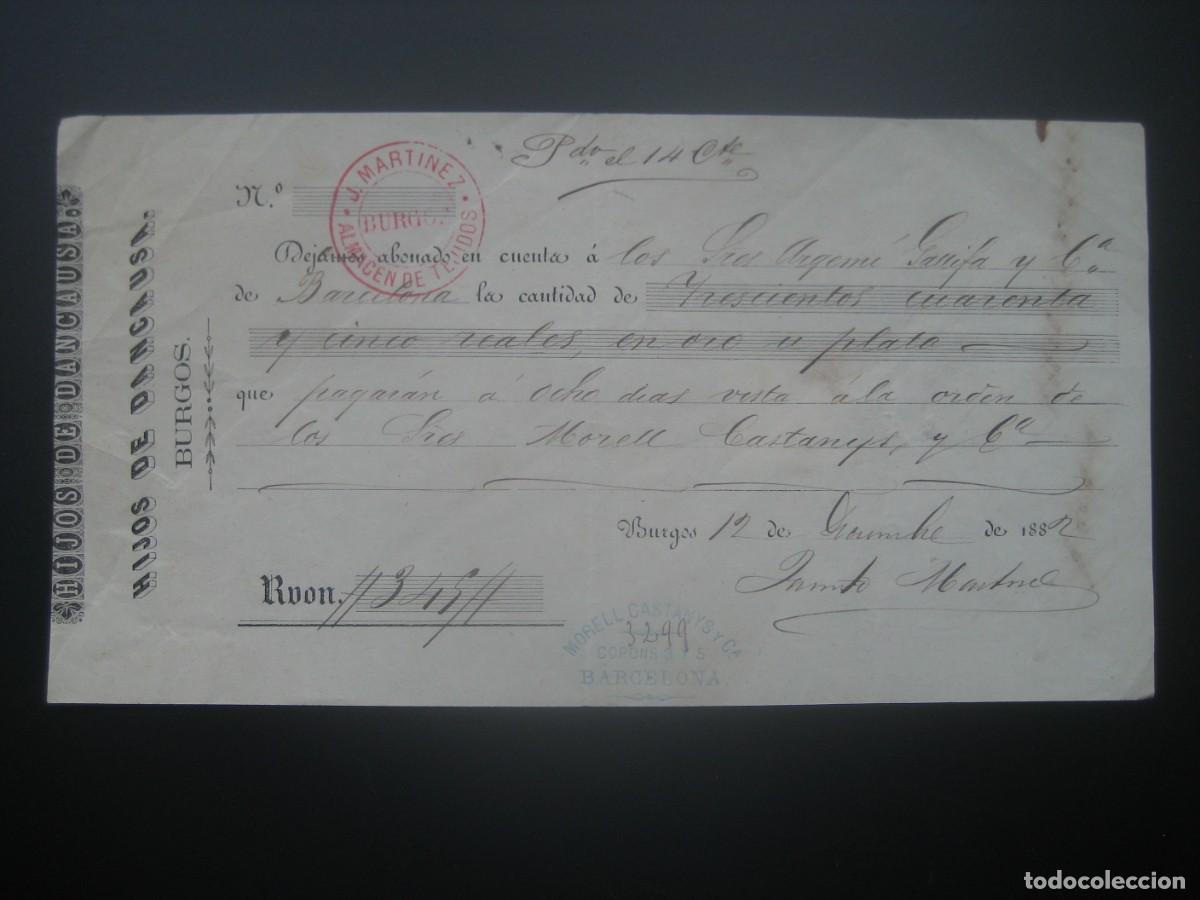 HIJOS DE DANCAUSA.
HIJOS DE DANCAUSA.
BURGOS.
Pdo el 14 Cte
N.º
J. MARTINEZ
BURGOS
ALMACEN DE TEJIDOS
Dejamos abonado en cuenta á los Sres Argemí y Cª
de Barcelona la cantidad de Trescientos cuarenta
y cinco reales, en oro u plata
que pagarán á ocho dias vista á la orden de
los Sres Morell Castanys, y Cª
Burgos 12 de de 1882
Rvon. 345
MORELL CASTANYS Y Cª
3299
COPONS 3 Y 5
BARCELONA.
todocoleccion